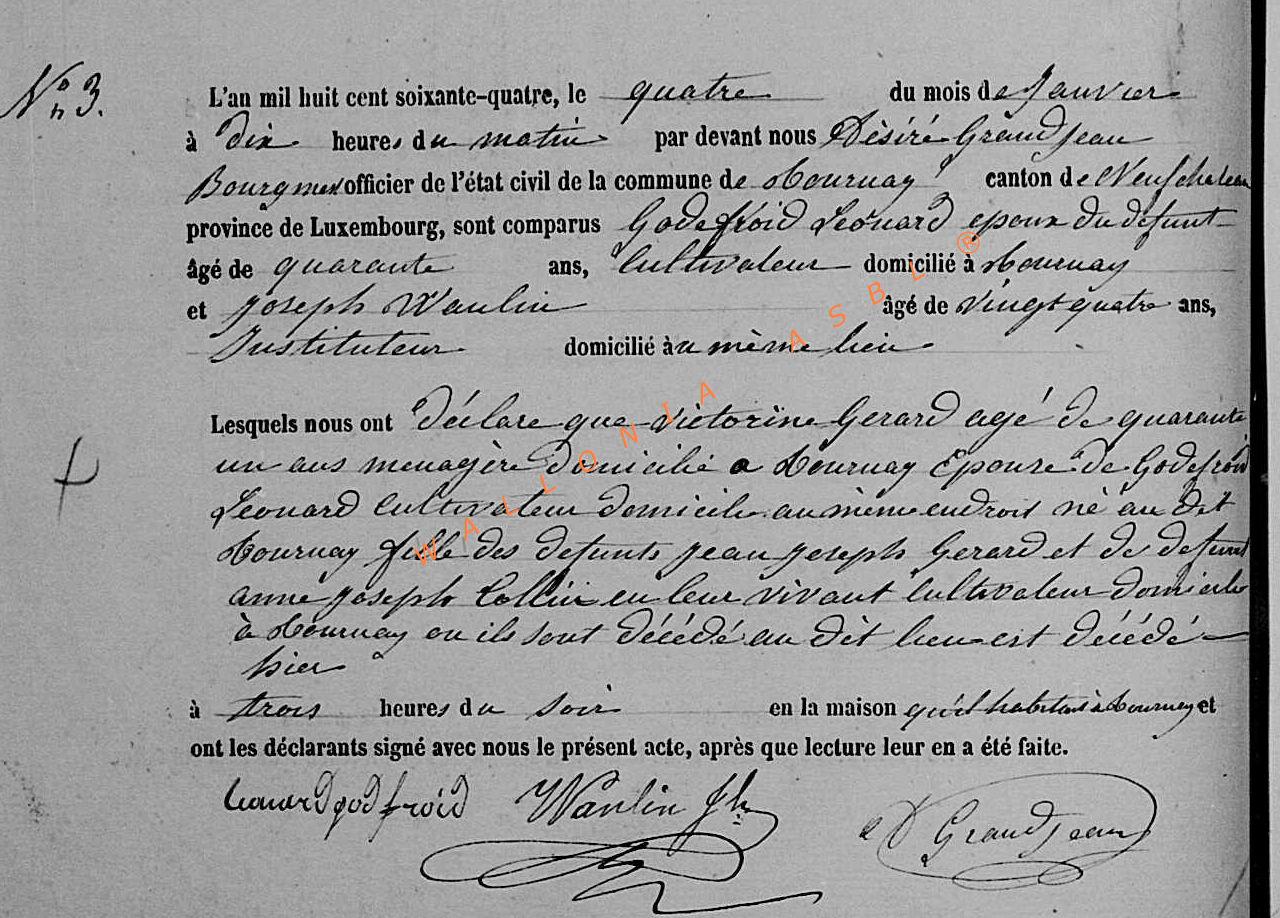 Nº 3.
L'an mil huit cent soixante-quatre, le quatre du mois de Janvier
à dix heures du matin par devant nous Dèsiré Grandjean
Bourgmes officier de l'état civil de la commune de Tournay canton de Neufchateau
province de Luxembourg, sont comparus Godefroid Léonard epoux du defunt
âgé de quarante ans, Cultivateur domicilié à Tournay
et Joseph Waulin âgé de vingt quatre ans,
Instituteur domicilié au mème lieu
Lesquels nous ont déclare que Victorine Gerard agé de quarante
un ans menagère domicilié a Tournay Epouse de Godefroid
Leonard Cultivateur domicile au mème endroit né au dit
Tournay fille des defunts jean joseph Gerard et de defunt
anne joseph Collin en leur vivant Cultivateur domicile
à Tournay ou ils sont décédé au dit lieu est décédé
hier
à trois heures du soir en la maison qu'il habitait à Tournay et
ont les déclarants signé avec nous le présent acte, après que lecture leur en a été faite.
Leonard godfroid Waulin Jh D Grandjean
WALLONIA ASBL ®